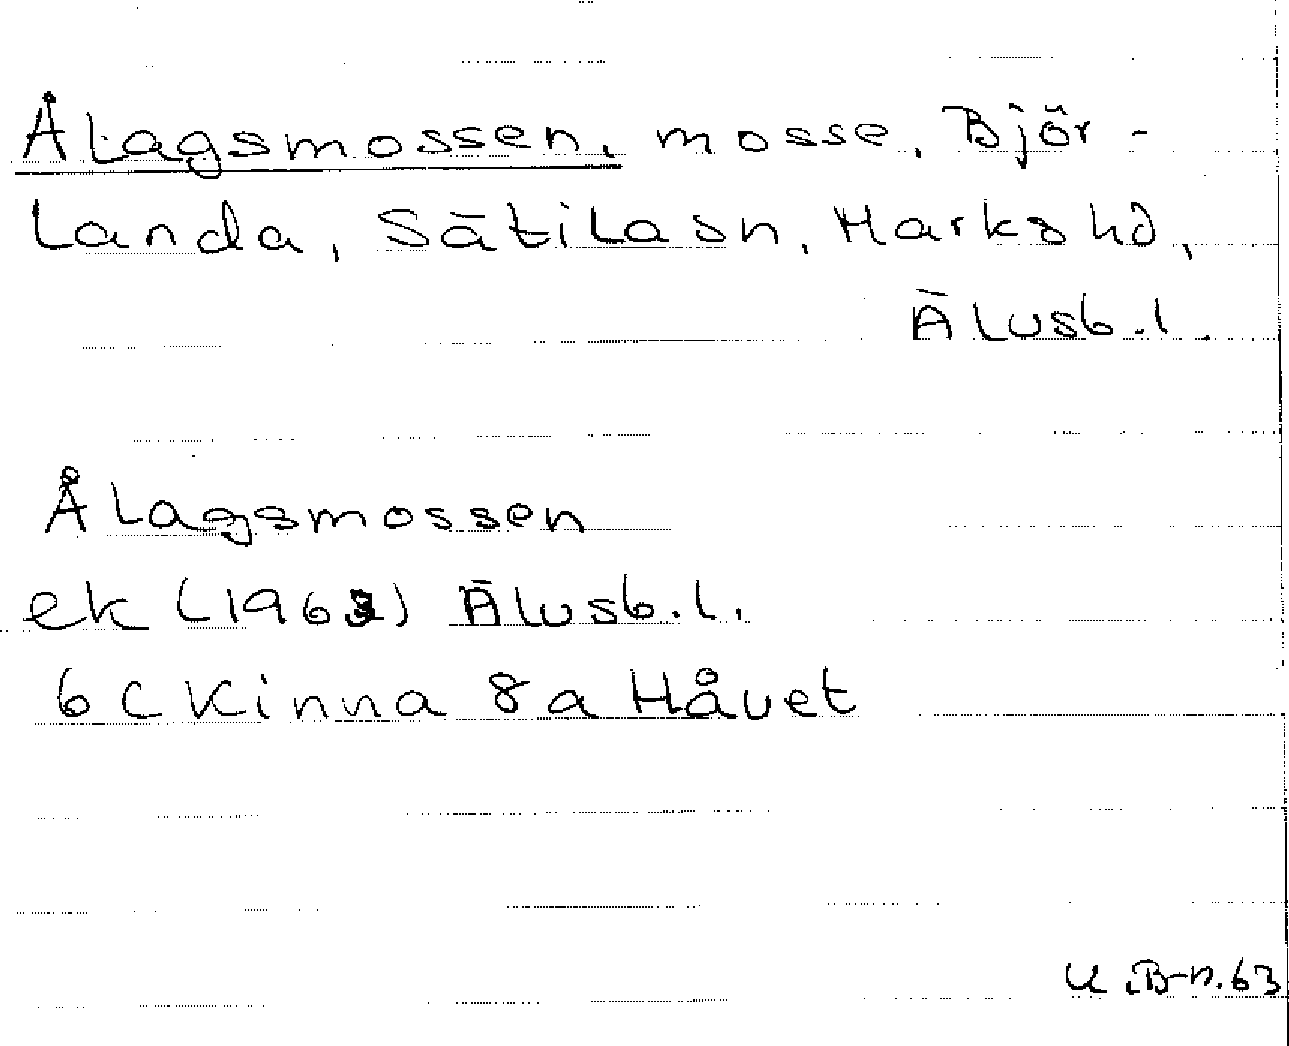 Ålagsmossen, mosse, Björ-
landa, Sätila sn, Marks hd,
Älvsb.l.
Ålagsmossen
ek (1963) Älvsb.l.
6C Kinna 8a Håvet
U.B-n.63